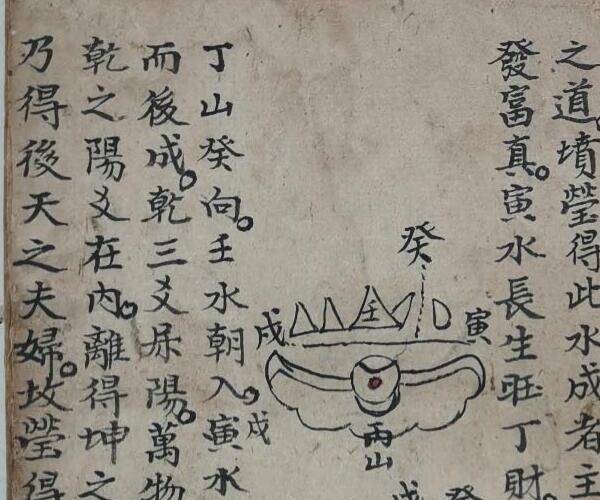 之道。墳瑩得此水成者主
發富真。寅水長生旺丁財。
癸
戌
壬
寅
丙山
丁山癸向。壬水朝入。寅水
戌
而後成。乾三爻屬陽。萬物
乾之陽爻在內。離得坤之
乃得後天之夫婦。故瑩得
癸
戌